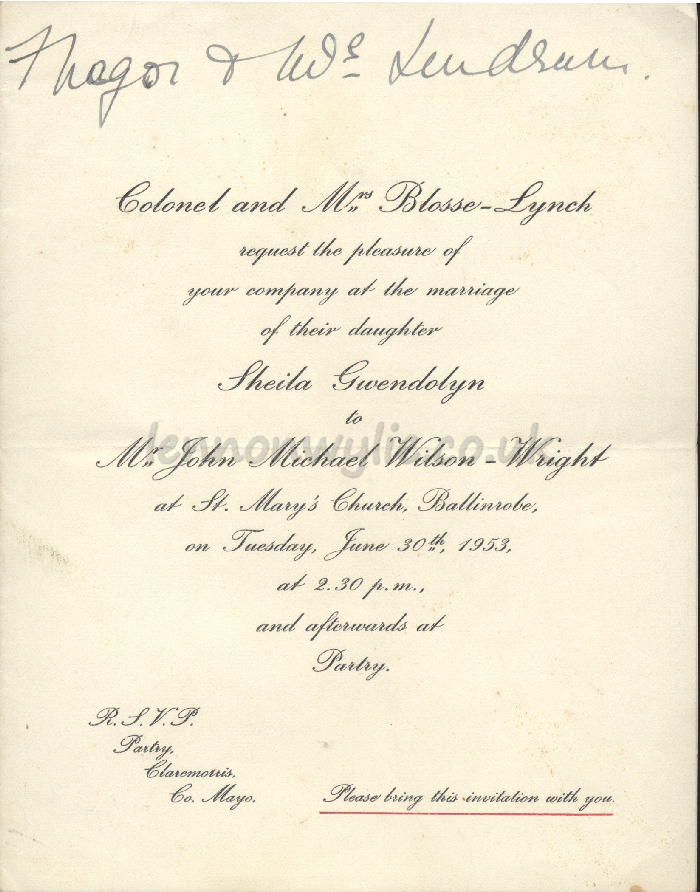 Major & Mrs Lendrum.
Colonel and Mrs Blosse-Lynch
request the pleasure of
your company at the marriage
of their daughter
Sheila Gwendolyn
to
lennonwylie.co.uk
Mr John Michael Wilson-Wright
at St. Mary's Church, Ballinrobe,
on Tuesday, June 30th, 1953,
at 2.30 p.m.,
and afterwards at
Partry.
R.S.V.P.
Partry,
Claremorris,
Co. Mayo.
Please bring this invitation with you.